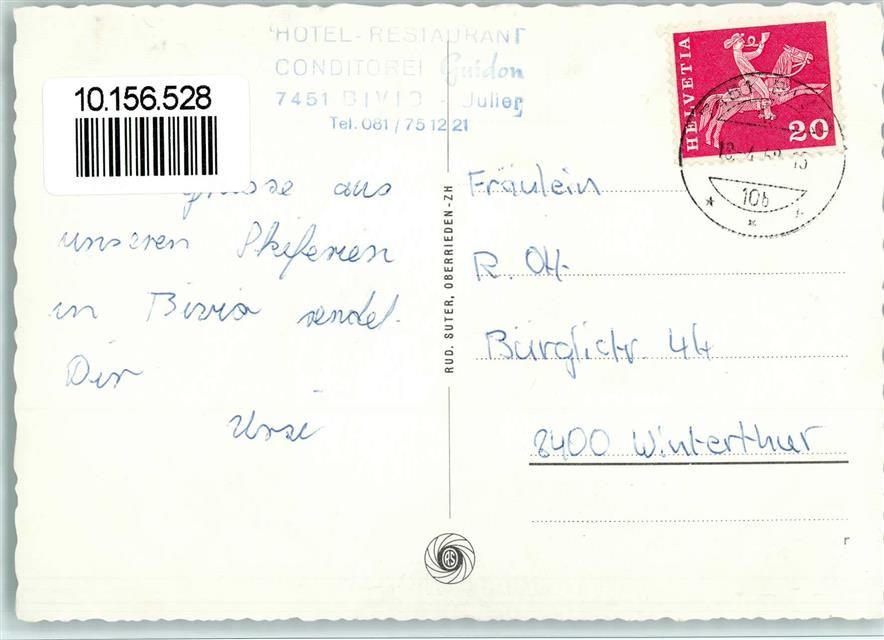 HOTEL-RESTAURANT
CONDITOREI Guidon
7451 BIVIO - Julier
Tel. 081/75 12 21
10.156.528
HELVETIA
20
10b
aus
unseren Skiferien
in Bivio sendet
Dir
Ursi
RUD. SUTER, OBERRIEDEN-ZH
Fräulein
R. Ott
Bürglistr. 44
8400 Winterthur
RS